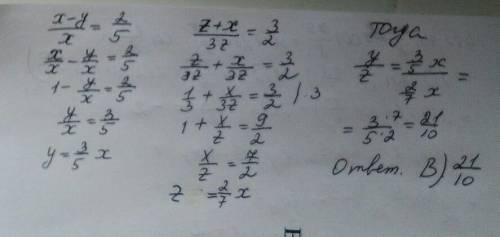 (x-y)/x = 2/5
x/x - y/x = 2/5
1 - y/x = 2/5
y/x = 3/5
y = 3/5 x
(z+x)/3z = 3/2
z/3z + x/3z = 3/2
1/3 + x/3z = 3/2 | · 3
1 + x/z = 9/2
x/z = 7/2
z = 2/7 x
Тогда
y/z = (3/5 x)/(2/7 x) =
= (3 · 7)/(5 · 2) = 21/10
Ответ. В) 21/10